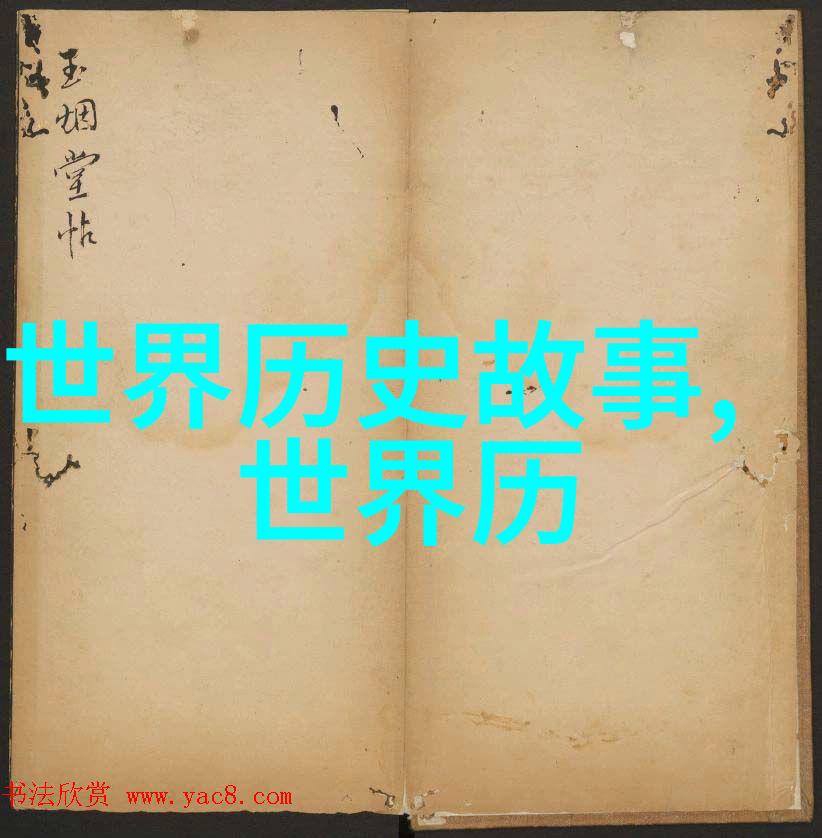 玉烟堂帖
世界历史故事,
世界历
书法欣赏 www.yac8.com